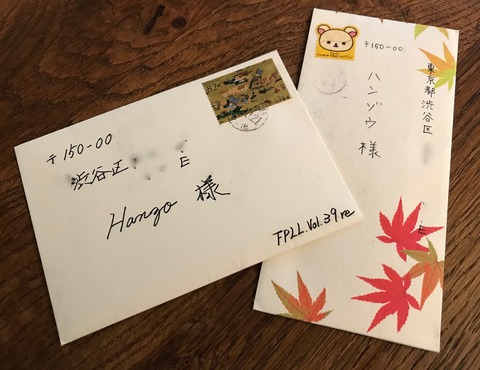 〒150-00
渋谷区
E
Hanzo 様
FPLL.Vol.39 re
〒150-00
東京都渋谷区
E
ハンゾウ様